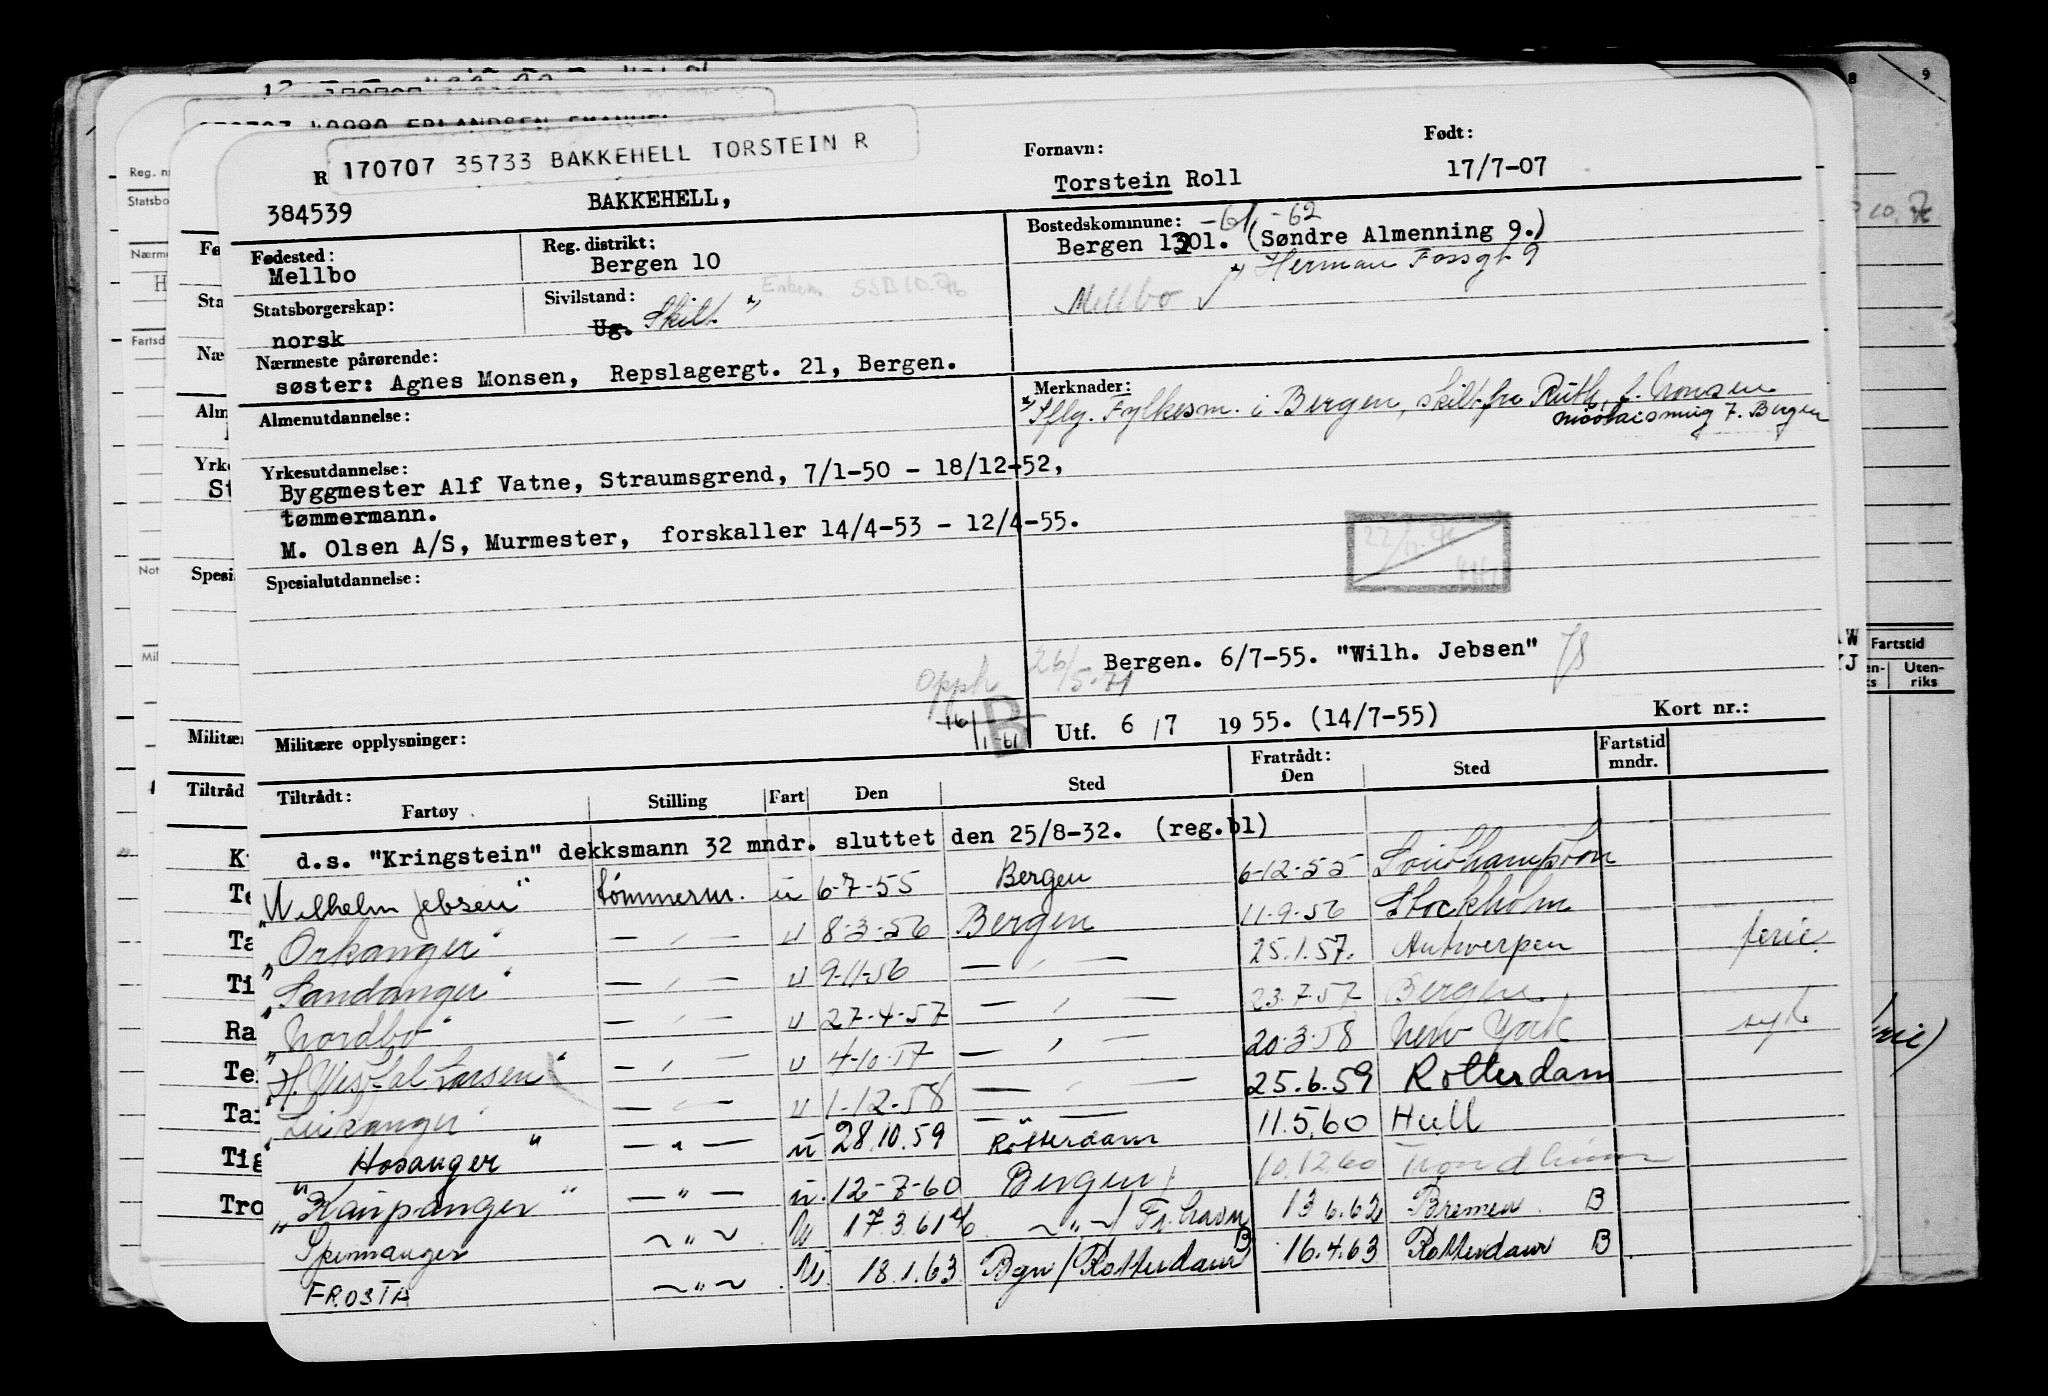 170707 35733 BAKKEHELL TORSTEIN R
Fornavn:
Født:
384539
BAKKEHELL,
Torstein Roll
17/7-07
Fødested:
Mellbo
Reg. distrikt:
Bergen 10
Bostedskommune: -61 -62
Bergen 1301. (Søndre Almenning 9.)
Herman Fossgt 9
Mellbo
Statsborgerskap:
norsk
Sivilstand:
Ug. Skilt
Nærmeste pårørende:
søster: Agnes Monsen, Repslagergt. 21, Bergen.
Merknader:
Iflg. Fylkesm. i Bergen, skilt fra Ruth, f. Monsen
Nicolaismug 7. Bergen
Almenutdannelse:
Yrkesutdannelse:
Byggmester Alf Vatne, Straumsgrend, 7/1-50 - 18/12-52,
tømmermann.
M. Olsen A/S, Murmester, forskaller 14/4-53 - 12/4-55.
Spesialutdannelse:
Bergen. 6/7-55. "Wilh. Jebsen" 78
Opph 26/5-71
16/1-61
B
Utf. 6/7 1955. (14/7-55)
Kort nr.:
Militære opplysninger:
Tiltrådt:
Fartøy
Stilling
Fart
Den
Sted
Fratrådt:
Den
Sted
Fartstid
mndr.
d.s. "Kringstein" dekksmann 32 mndr. sluttet den 25/8-32. (reg.bl)
"Wilhelm Jebsen" tømmerm. u 6-7-55 Bergen 6-12-55 Southampton
"Orkanger" — " — u 8-3-56 Bergen 11-9-56 Stockholm
"Sandanger" — " — u 9-11-56 — " — 25.1.57. Antwerpen ferie.
"Nordbo" — " — u 27-4-57 — " — 23.7.57 Bergen
"H. Westfal Larsen" — " — u 4-10-57 — " — 20.3.58 New York syk
"Leikanger" — " — u 1-12-58 — " — 25.6.59 Rotterdam
"Hosanger" — " — u 28.10.59 Rotterdam 11.5.60 Hull
"Kaupanger" — " — u. 12-7-60 Bergen 10.12.60 Trondheim
Spinnanger — " — U 17.3.61 — " — / Fr.havn 13.6.62 Bremen B
FROSTA — " — U 18.1.63 Bgn/Rotterdam B 16.4.63 Rotterdam B
Fartstid
Uten-
riks